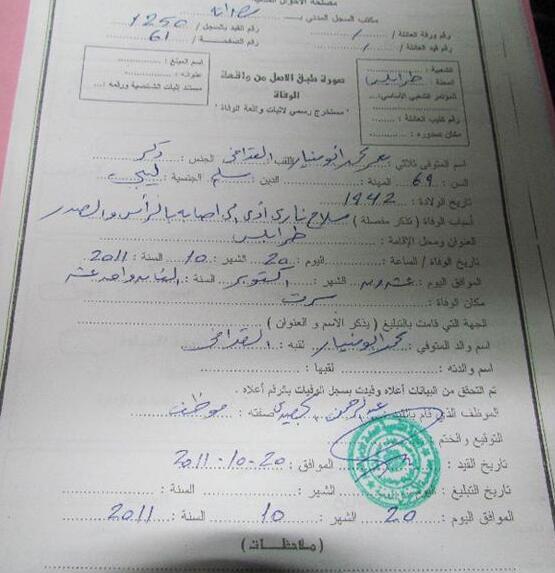 مكتب السجل المدني بـ مصراتة
رقم ورقة العائلة / رقم القيد بالسجل / 1250
رقم قيد العائلة / رقم الصفحة 61
الشعبية :
المحلة : طرابلس
المؤتمر الشعبي الأساسي
رقم كتيب العائلة :
مكان صدوره :
صورة طبق الاصل من واقعة
الوفاة
" مستخرج رسمي لاثبات واقعة الوفاة "
اسم المبلغ :
عنوانه :
مستند إثبات الشخصية ورقمه :
اسم المتوفي ثلاثي معمر محمد ابومنيار اللقب القذافي الجنس : ذكر
السن : 69 المهنة : الدين : مسلم الجنسية : ليبي
تاريخ الولادة : 1942
أسباب الوفاة ( تذكر مفصلة ) سلاح ناري أدى إلى اصابه بالرأس والصدر
العنوان ومحل الإقامة : طرابلس
تاريخ الوفاة / الساعة : اليوم : 20 الشهر : 10 السنة : 2011
الموافق اليوم : عشرون الشهر : اكتوبر السنة : الفان واحد عشر
مكان الوفاة : سرت
الجهة التي قامت بالتبليغ ( يذكر الاسم و العنوان )
اسم والد المتوفي : محمد ابومنيار لقبه : القذافي
اسم والدته : لقبها :
تم التحقق من البيانات أعلاه وقيدت بسجل الوفيات بالرقم أعلاه .
الموظف الذي قام بالقيد عبدالرحمن صفته : موظف
التوقيع والختم
تاريخ القيد : الموافق : 20-10-2011
تاريخ التبليغ : الشهر : السنة :
الموافق اليوم : 20 الشهر : 10 السنة : 2011
( ملاحظات )